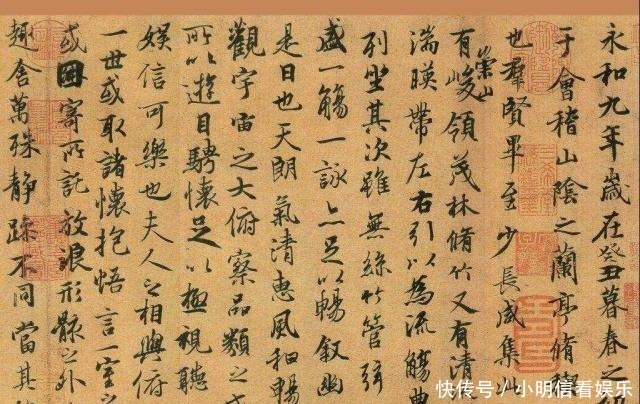 永和九年歲在癸丑暮春之初
于會稽山陰之蘭亭脩禊
也羣賢畢至少長咸集此
崇山
有峻領茂林脩竹又有清
湍暎帶左右引以為流觴曲
列坐其次雖無絲竹管弦
盛一觴一詠亦足以暢叙幽
是日也天朗氣清惠風和暢
觀宇宙之大俯察品類之
所以遊目騁懷足以極視聽
娛信可樂也夫人之相與俯
一世或取諸懷抱悟言一室之
或因寄所託放浪形骸之外
趣舍萬殊静躁不同當其
快传号/小明信看娱乐